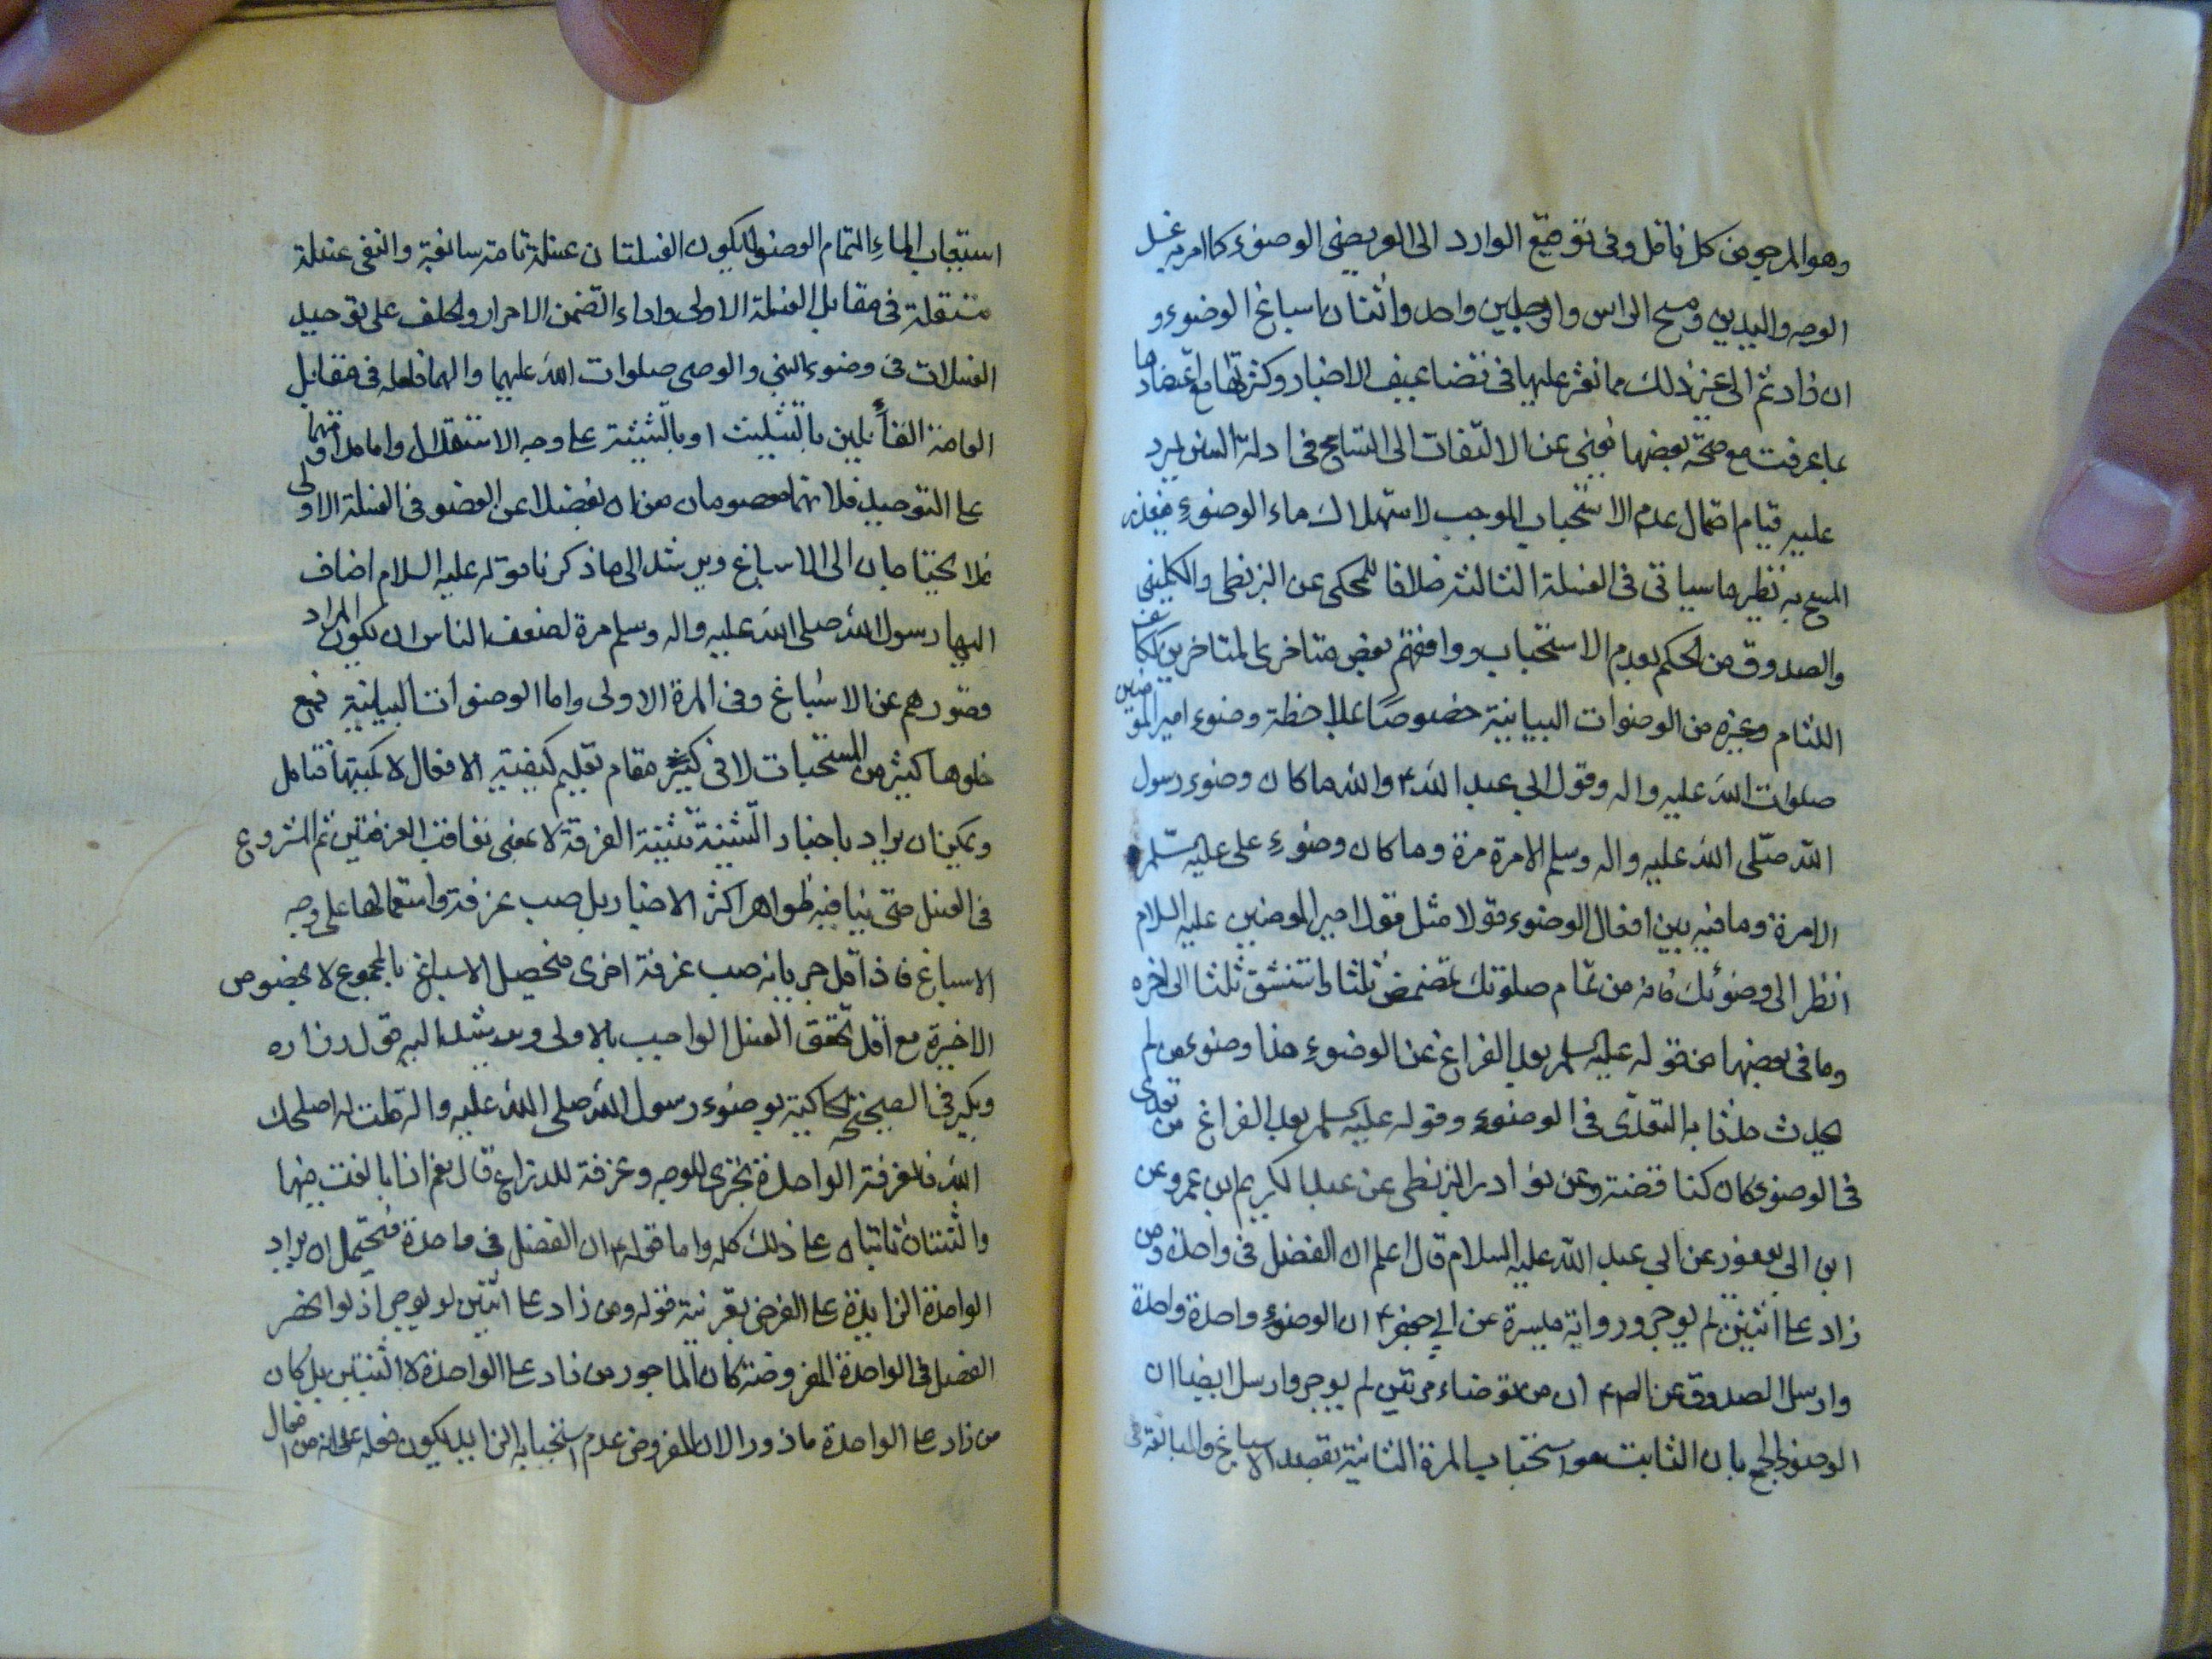 وهو المرجو من كل ناقل وفى توقيع الوارد الى العريضى الوضوء كما امر به غسل
الوجه واليدين ومسح الراس والرجلين واحد واثنان اسباغ الوضوء و
ان زاد ثم الى غير ذلك مما نعثر عليها فى تضاعيف الاخبار وكثرتها مع اعتضادها
بما عرفت مع صحة بعضها يغنى عن الالتفات الى التسامح فى ادلة السنن ليرد
عليه قيام احتمال عدم الاستحباب الموجب لاستهلاك ماء الوضوء فيتعذر
المسح به نظير ما سياتى فى الغسلة الثالثة خلافا للمحكى عن البزنطى والكلينى
والصدوق من الحكم بعدم الاستحباب ووافقهم بعض متاخرى المتاخرين ككاشف
اللثام وغيره من الوضوات البيانية خصوصا بملاحظة وضوء امير المؤمنين
صلوات الله عليه واله وقول ابى عبد الله ع والله ما كان وضوء رسول
الله صلى الله عليه واله وسلم الا مرة مرة وما كان وضوء على عليه السلم
الا مرة وما فيه بين افعال الوضوء قولا مثل قول امير المومنين عليه السلام
انظر الى وضوئك فانه من تمام صلوتك تمضمض ثلثا واستنشق ثلثا الى اخره
وما فى بعضها من قوله عليه السلم بعد الفراغ عن الوضوء هذا وضوء من لم
يحدث حدثا به التعدى فى الوضوء وقوله عليه السلم بعد الفراغ من تعدى
فى الوضوء كان كناقضه وعن نوادر البزنطى عن عبد الكريم بن عمرو عن
ابن ابى يعفور عن ابى عبد الله عليه السلام قال اعلم ان الفضل فى واحدة ومن
زاد على اثنين لم يوجر ورواية ميسرة عن ابى جعفر ع ان الوضوء واحدة واحدة
وارسل الصدوق عن الص ع ان من توضاء مرتين لم يوجر وارسل ايضا ان
الوضوء والجمع بان الثابت هو استحباب المرة الثانية بقصد الاسباغ والمبالغة فى
استيعاب الماء التمام الوضوء لا ليكون الغسلتان غسلة تامة سائغة والنفى غسلة
مستقلة فى مقابل الغسلة الاولى واداء التضمن الاحرار والحلف على توحيد
الغسلات فى وضوء النبى والوصى صلوات الله عليهما والهما فلعله فى مقابل
العامة القائلين بالتثليث او بالتثنية على وجه الاستقلال واما مداومتهما
على التوحيد فلانهما معصومان من ان يفضلا عن العضو فى الغسلة الاولى
فلا يحتاجان الى الاسباغ ويرشد الى ما ذكرنا قوله عليه السلام اضاف
اليها رسول الله صلى الله عليه واله وسلم مرة لضعف الناس ان يكون المراد
قصورهم عن الاسباغ وفى المرة الاولى واما الوضوات البيانية فمع
خلوها كثير من المستحبات لا فى كثير مقام تعليم كيفية الافعال لا كميتها فتامل
ويمكن ان يراد باخبار التثنية تثنية الغرفة لا بمعنى تعاقب الغرفتين ثم الشروع
فى الغسل حتى ينافيه ظواهر اكثر الاخبار بل صب غرفة واستعمالها على وجه
الاسباغ فاذا قل جريانه صب غرفة اخرى فيحصل الاسباغ بالمجموع لا بخصوص
الاخيرة مع اقل تحقق الغسل الواجب بالاولى ويرشد اليه قول زراره
وبكير فى الصحيحة الحاكية بوضوء رسول الله صلى الله عليه واله قلت له اصلحك
الله فالغرفة الواحدة تجزى للوجه وغرفة للذراع قال نعم اذا بالغت فيها
والثنتان تاتيان على ذلك كله واما قوله ع ان الفضل فى واحدة فيحتمل ان يراد
الواحدة الزايدة على الفرض بقرينة قوله ومن زاد على اثنين لو يوجر اذ لو انحصر
الفضل فى الواحدة المفروضة كان الماجور من زاد على الواحدة لا اثنتين بل كان
من زاد على الواحدة ماذورا لان المفروض عدم استحبابه الزايد يكون فعله على انه من افعال